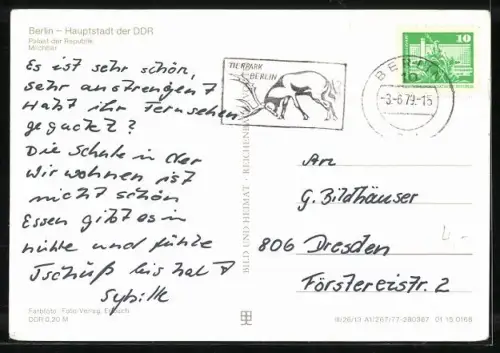 Berlin – Hauptstadt der DDR
Palast der Republik
Milchbar
Es ist sehr schön,
sehr anstrengend
Habt ihr Fernsehen
geguckt?
Die Schule in der
wir wohnen ist
nicht schön
Essen gibt es in
und
Tschüß bis bald
Sybille
Farbfoto: Foto-Verlag
DDR 0,20 M
BILD UND HEIMAT · REICHENB
TIERPARK
BERLIN
BERLIN
-3.-6.79.-15
10
An
G. Bildhäuser
806 Dresden
Förstereistr. 2
4,-
III/26/13 A1/267/77-280387 01 15 0166